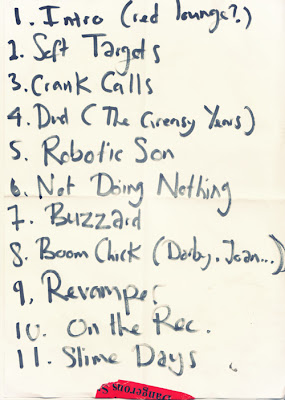 1. Intro (red lounge?)
2. Soft Targets
3. Crank Calls
4. Dud (The Greasy Years)
5. Robotic Son
6. Not Doing Nothing
7. Buzzard
8. Boom Chick (Darby, Joan...)
9, Revamper
10. On the Rec.
11. Slime Days
Dangerous